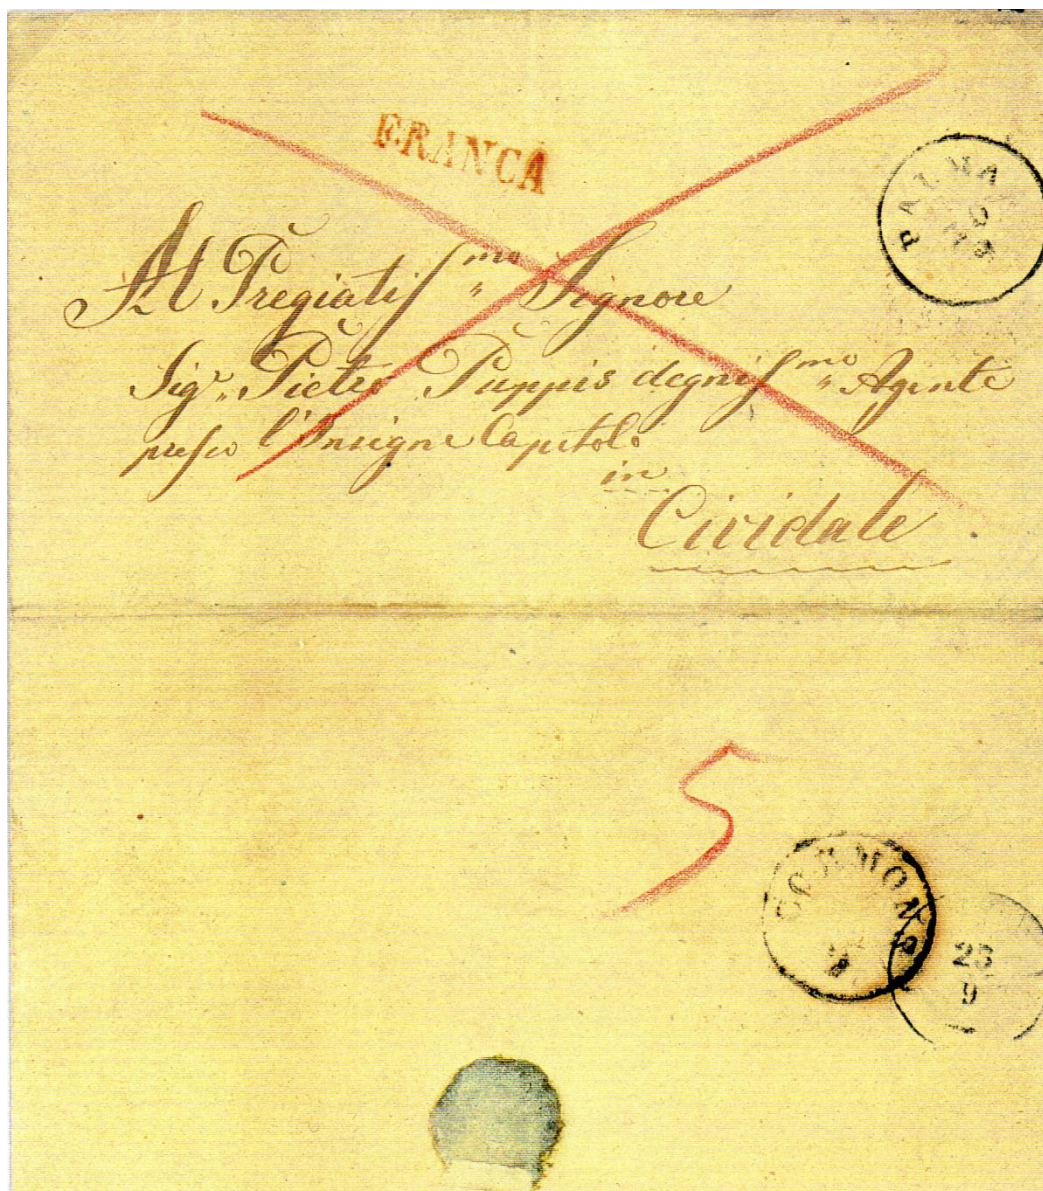 FRANCA
PALMA
Al Pregiatiss.mo Signore
Sig.r Pietro Puppis degniss.mo Agente
presso l'Insigne Capitolo
in
Cividale
5
CORMONS
23
9